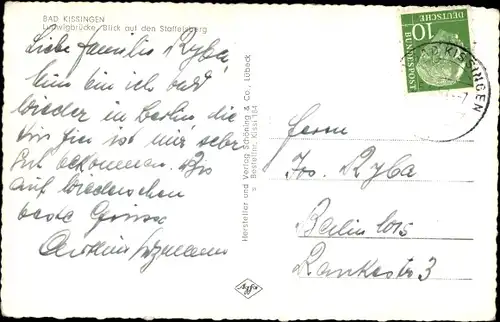 BAD KISSINGEN
Ludwigbrücke, Blick auf den Staffelsberg
Liebe Familie Ryba!
Nun bin ich bald
wieder in Berlin die
Kur hier ist mir sehr
gut bekommen. Bis
auf Wiedersehen
beste Grüsse
Hersteller und Verlag Schöning & Co., Lübeck
Bestellnr. Kissi 164
10
DEUTSCHE
BUNDESPOST
BAD KISSINGEN
Herrn
Jos. Ryba
Berlin
Rankestr 3